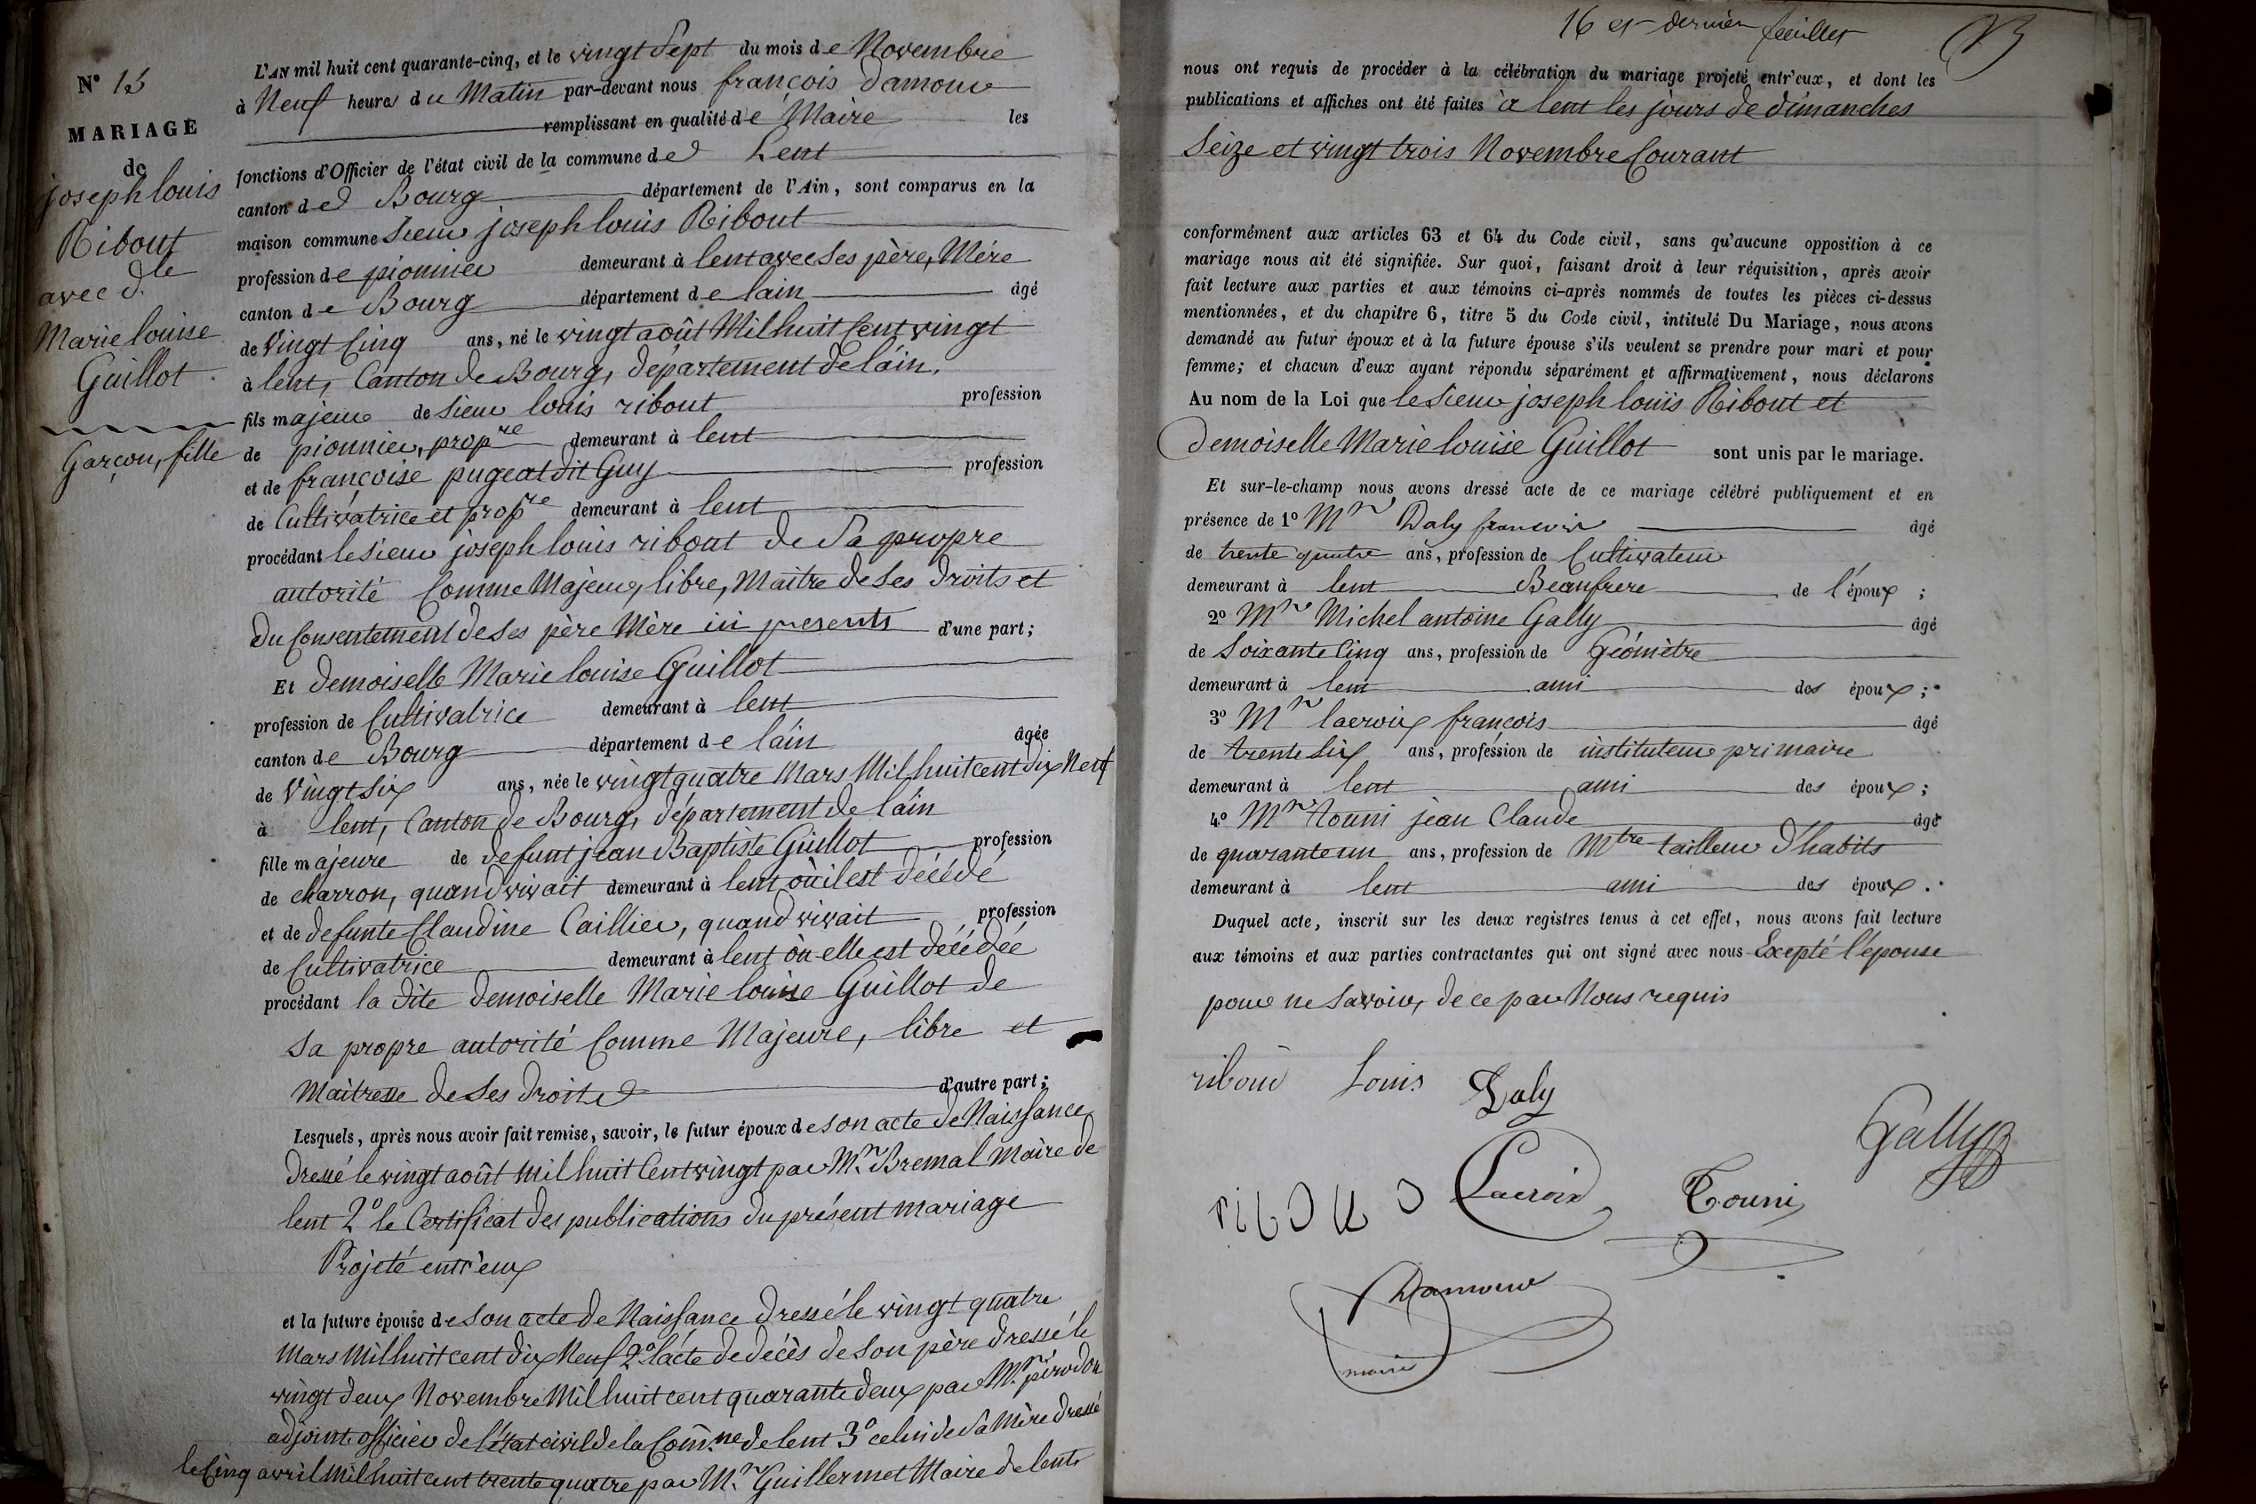 N° 15
MARIAGE
de
joseph louis
Ribout
avec dlle
Marie louise
Guillot
Garçon, fille
L'AN mil huit cent quarante-cinq, et le vingt Sept du mois de Novembre
à Neuf heures du Matin par-devant nous françois Damour
remplissant en qualité de Maire les
fonctions d'Officier de l'état civil de la commune de Lent
canton de Bourg département de l'Ain, sont comparus en la
maison commune Sieur joseph louis Ribout
profession de pionnier demeurant à lent avec Ses père, Mère
canton de Bourg département de lain âgé
de Vingt Cinq ans, né le vingt août Mil huit Cent vingt
à lent, Canton de Bourg, département de l'áin.
fils majeur de Sieur louis ribout profession
de pionnier, propre demeurant à lent
et de françoise pugeat dit Guy profession
de Cultivatrice et propre demeurant à lent
procédant le Sieur joseph louis ribout de Sa propre
autorité Comme Majeur, libre, Maître de Ses droits et
du Consentement de Ses père Mère ici presents d'une part;
Et demoiselle Marie louise Guillot
profession de Cultivatrice demeurant à lent
canton de Bourg département de láin âgée
de Vingt Six ans, née le vingt quatre Mars Mil huit cent dix Neuf
à lent, Canton de Bourg, département de láin
fille majeure de defunt jean Baptiste Guillot profession
de charron, quand vivait demeurant à lent où il est décédé
et de defunte Claudine Caillier, quand vivait profession
de Cultivatrice demeurant à lent où elle est décédée
procédant la dite demoiselle Marie louise Guillot de
Sa propre autorité Comme Majeure, libre et
Maitresse de Ses droits d'autre part;
Lesquels, après nous avoir fait remise, savoir, le futur époux de son acte de Naissance
dressé le vingt août Mil huit Cent vingt par Mr. Bremal Maire de
lent 2° le Certificat des publications du présent mariage
Projeté entr'eux
et la future épouse de son acte de Naissance dressé le vingt quatre
Mars Mil huit cent dix Neuf 2° l'acte de décès de Son père dressé le
vingt deux Novembre Mil huit cent quarante deux par Mr. pirodon
adjoint officier de l'état civil de la Comne de lent 3° celui de Sa Mère dressé
le Cinq avril Mil huit cent trente quatre par Mr. Guillermet Maire de lent
16 et dernier feuillet
nous ont requis de procéder à la célébration du mariage projeté entr'eux, et dont les
publications et affiches ont été faites à lent les jours de dimanches
Seize et vingt trois Novembre Courant
conformément aux articles 63 et 64 du Code civil, sans qu'aucune opposition à ce
mariage nous ait été signifiée. Sur quoi, faisant droit à leur réquisition, après avoir
fait lecture aux parties et aux témoins ci-après nommés de toutes les pièces ci-dessus
mentionnées, et du chapitre 6, titre 5 du Code civil, intitulé Du Mariage, nous avons
demandé au futur époux et à la future épouse s'ils veulent se prendre pour mari et pour
femme; et chacun d'eux ayant répondu séparément et affirmativement, nous déclarons
Au nom de la Loi que le Sieur joseph louis Ribout et
demoiselle Marie louise Guillot sont unis par le mariage.
Et sur-le-champ nous avons dressé acte de ce mariage célébré publiquement et en
présence de 1° Mr Daly francois âgé
de trente quatre ans, profession de Cultivateur
demeurant à lent Beaufrere de l'époux ;
2° Mr Michel antoine Gally âgé
de Soixante Cinq ans, profession de Géomètre
demeurant à lent ami des époux ;
3° Mr lacroix françois âgé
de trente Six ans, profession de instituteur primaire
demeurant à lent ami des époux ;
4° Mr touni jean Claude âgé
de quarante un ans, profession de Mtre tailleur d'habits
demeurant à lent ami des époux .
Duquel acte, inscrit sur les deux registres tenus à cet effet, nous avons fait lecture
aux témoins et aux parties contractantes qui ont signé avec nous Excepté l'épouse
pour ne Savoir, de ce par Nous requis
riboud Louis Daly
Gally
Lacroix Touni
Damour
maire